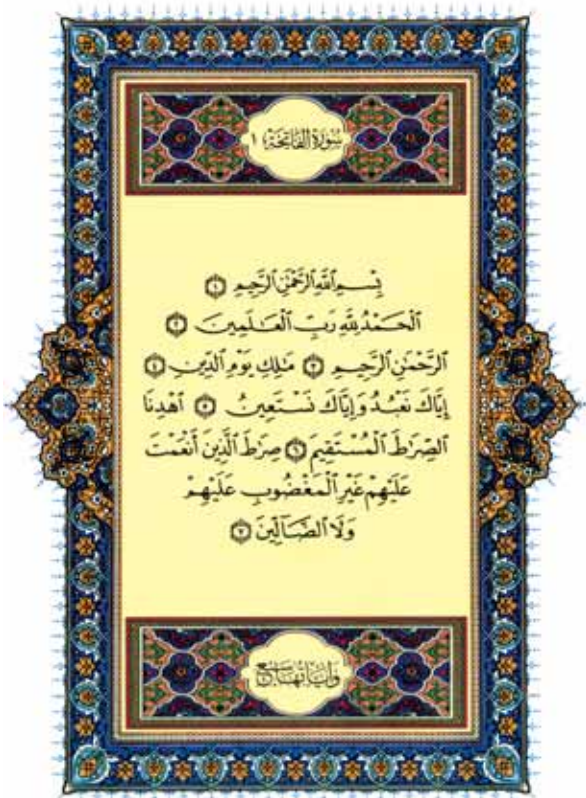 سُورَةُ الْفَاتِحَةِ ١
بِسْمِ اللَّهِ الرَّحْمَٰنِ الرَّحِيمِ ١
الْحَمْدُ لِلَّهِ رَبِّ الْعَٰلَمِينَ ٢
الرَّحْمَٰنِ الرَّحِيمِ ٣ مَٰلِكِ يَوْمِ الدِّينِ ٤
إِيَّاكَ نَعْبُدُ وَإِيَّاكَ نَسْتَعِينُ ٥ اهْدِنَا
الصِّرَٰطَ الْمُسْتَقِيمَ ٦ صِرَٰطَ الَّذِينَ أَنْعَمْتَ
عَلَيْهِمْ غَيْرِ الْمَغْضُوبِ عَلَيْهِمْ
وَلَا الضَّآلِّينَ ٧
وَآيَاتُهَا سَبْعٌ